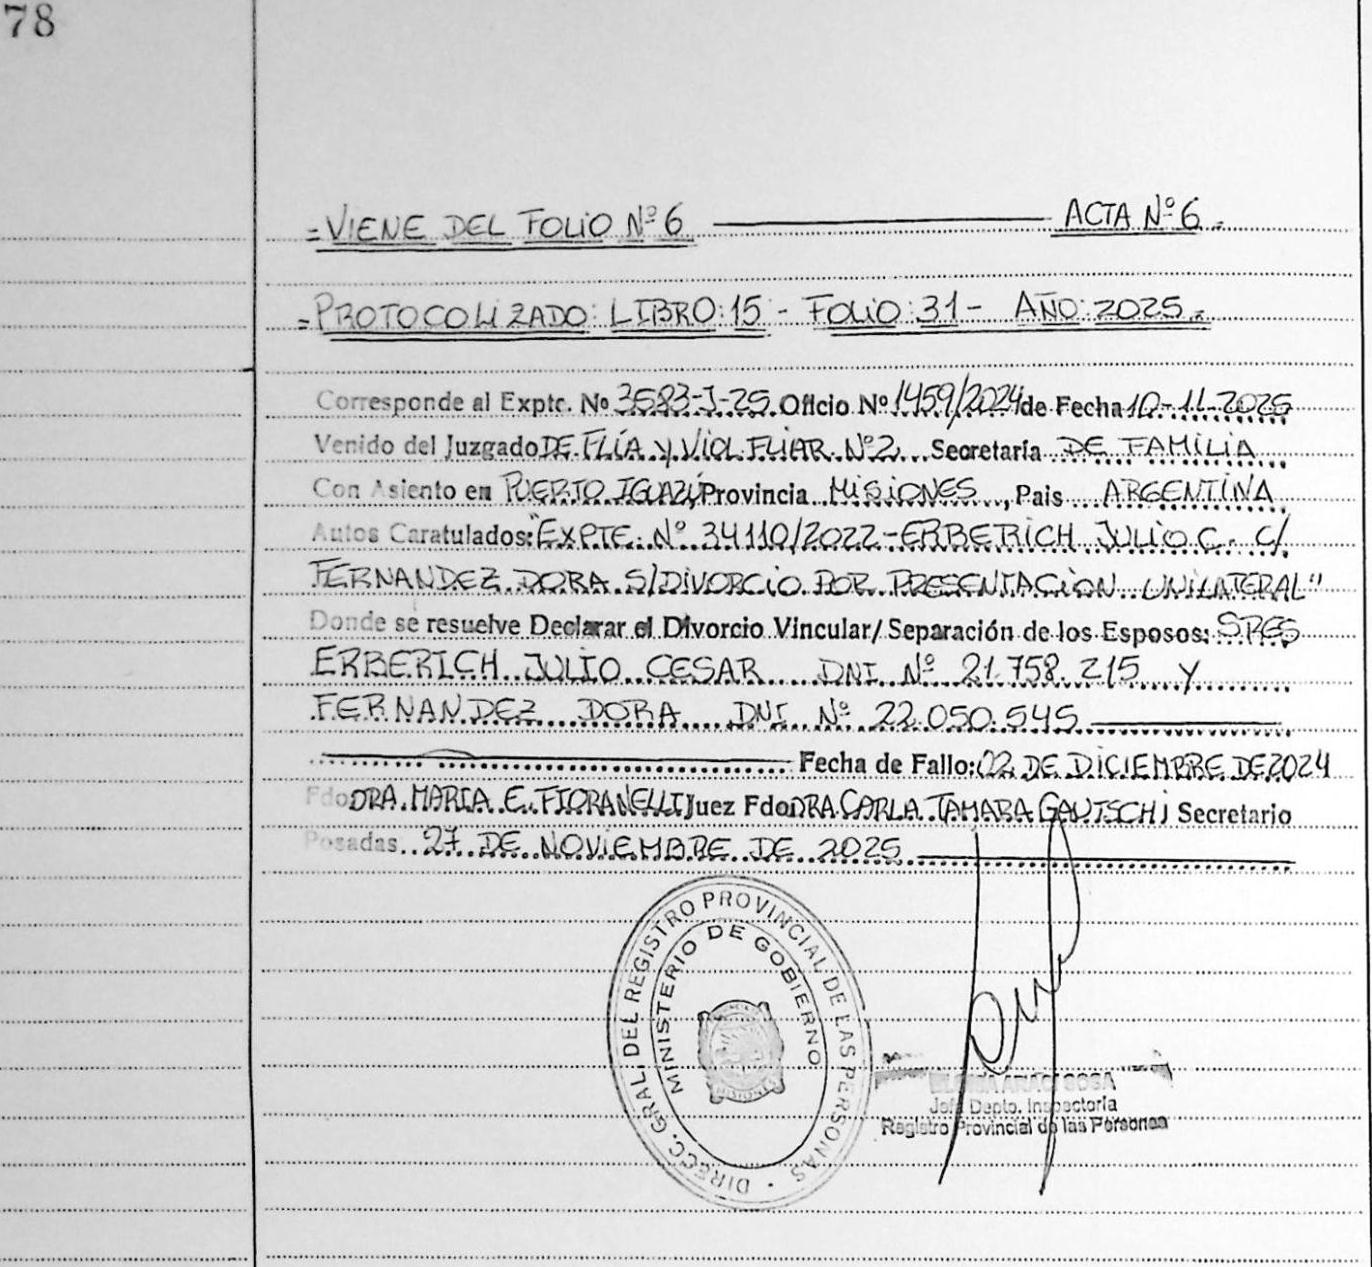 78
=VIENE DEL FOLIO Nº 6 ACTA Nº 6.=
=PROTOCOLIZADO: LIBRO: 15 - FOLIO: 31 - AÑO: 2025.=
Corresponde al Expte. Nº 3583-J-25 Oficio Nº 1459/2024 de Fecha 10-11-2025
Venido del Juzgado DE FLÍA Y VIOL FLIAR Nº 2 Secretaria DE FAMILIA
Con Asiento en PUERTO IGUAZÚ Provincia MISIONES, Pais ARGENTINA
Autos Caratulados: "EXPTE. Nº 34110/2022-ERBERICH JULIO C. C/
FERNANDEZ DORA S/DIVORCIO POR PRESENTACION UNILATERAL"
Donde se resuelve Declarar el Divorcio Vincular/ Separación de los Esposos: SRES
ERBERICH JULIO CESAR DNI Nº 21.758.215 Y
FERNANDEZ DORA DNI Nº 22.050.545
Fecha de Fallo: 02 DE DICIEMBRE DE 2024
Fdo DRA. MARIA E. FIORANELLI Juez Fdo DRA CARLA TAMARA GAUTSCHI Secretario
Posadas.. 27 DE NOVIEMBRE DE 2025
DIRECC. GRAL. DEL REGISTRO PROVINCIAL DE LAS PERSONAS
MINISTERIO DE GOBIERNO
SOSA
Jefa Depto. Inspectoria
Registro Provincial de las Personas